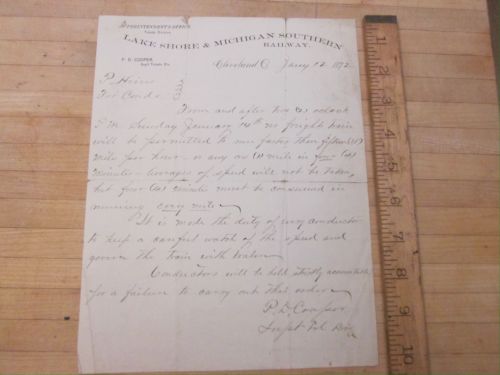 SUPERINTENDENT'S OFFICE
LAKE SHORE & MICHIGAN SOUTHERN
RAILWAY.
P. D. COOPER
Cleveland O. Jany 12 187
For Cond
From and after two o'clock
P.M. Sunday January 14th no freight train
will be permitted to run faster than fifteen (15)
mile per hour or any one (1) mile in four (4)
minutes of speed will not be taken,
but four (4) minutes must be consumed in
running every mile
It is made the duty of every conductor
to keep a careful watch of the speed and
govern the train with
Conductors will be held strictly accountable
for a failure to carry out this order
P. D. Cooper
Supt Tol Div
1
2
3
4
5
6
7
8
9
10